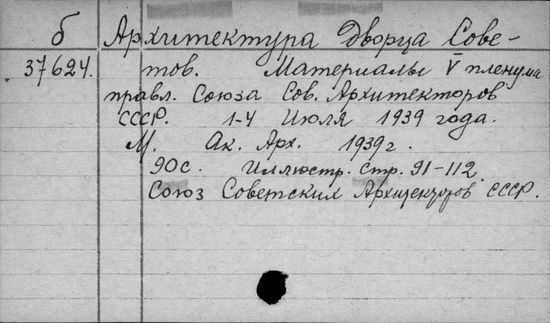 б Архитектура Дворца Сове-
37624. тов. Материалы V пленума
правл. Союза Сов. Архитекторов
СССР. 1-4 Июля 1939 года.
М. Ак. Арх. 1939 г.
90 с. Иллюстр. стр. 91-112.
Союз Советских Архитекторов СССР.